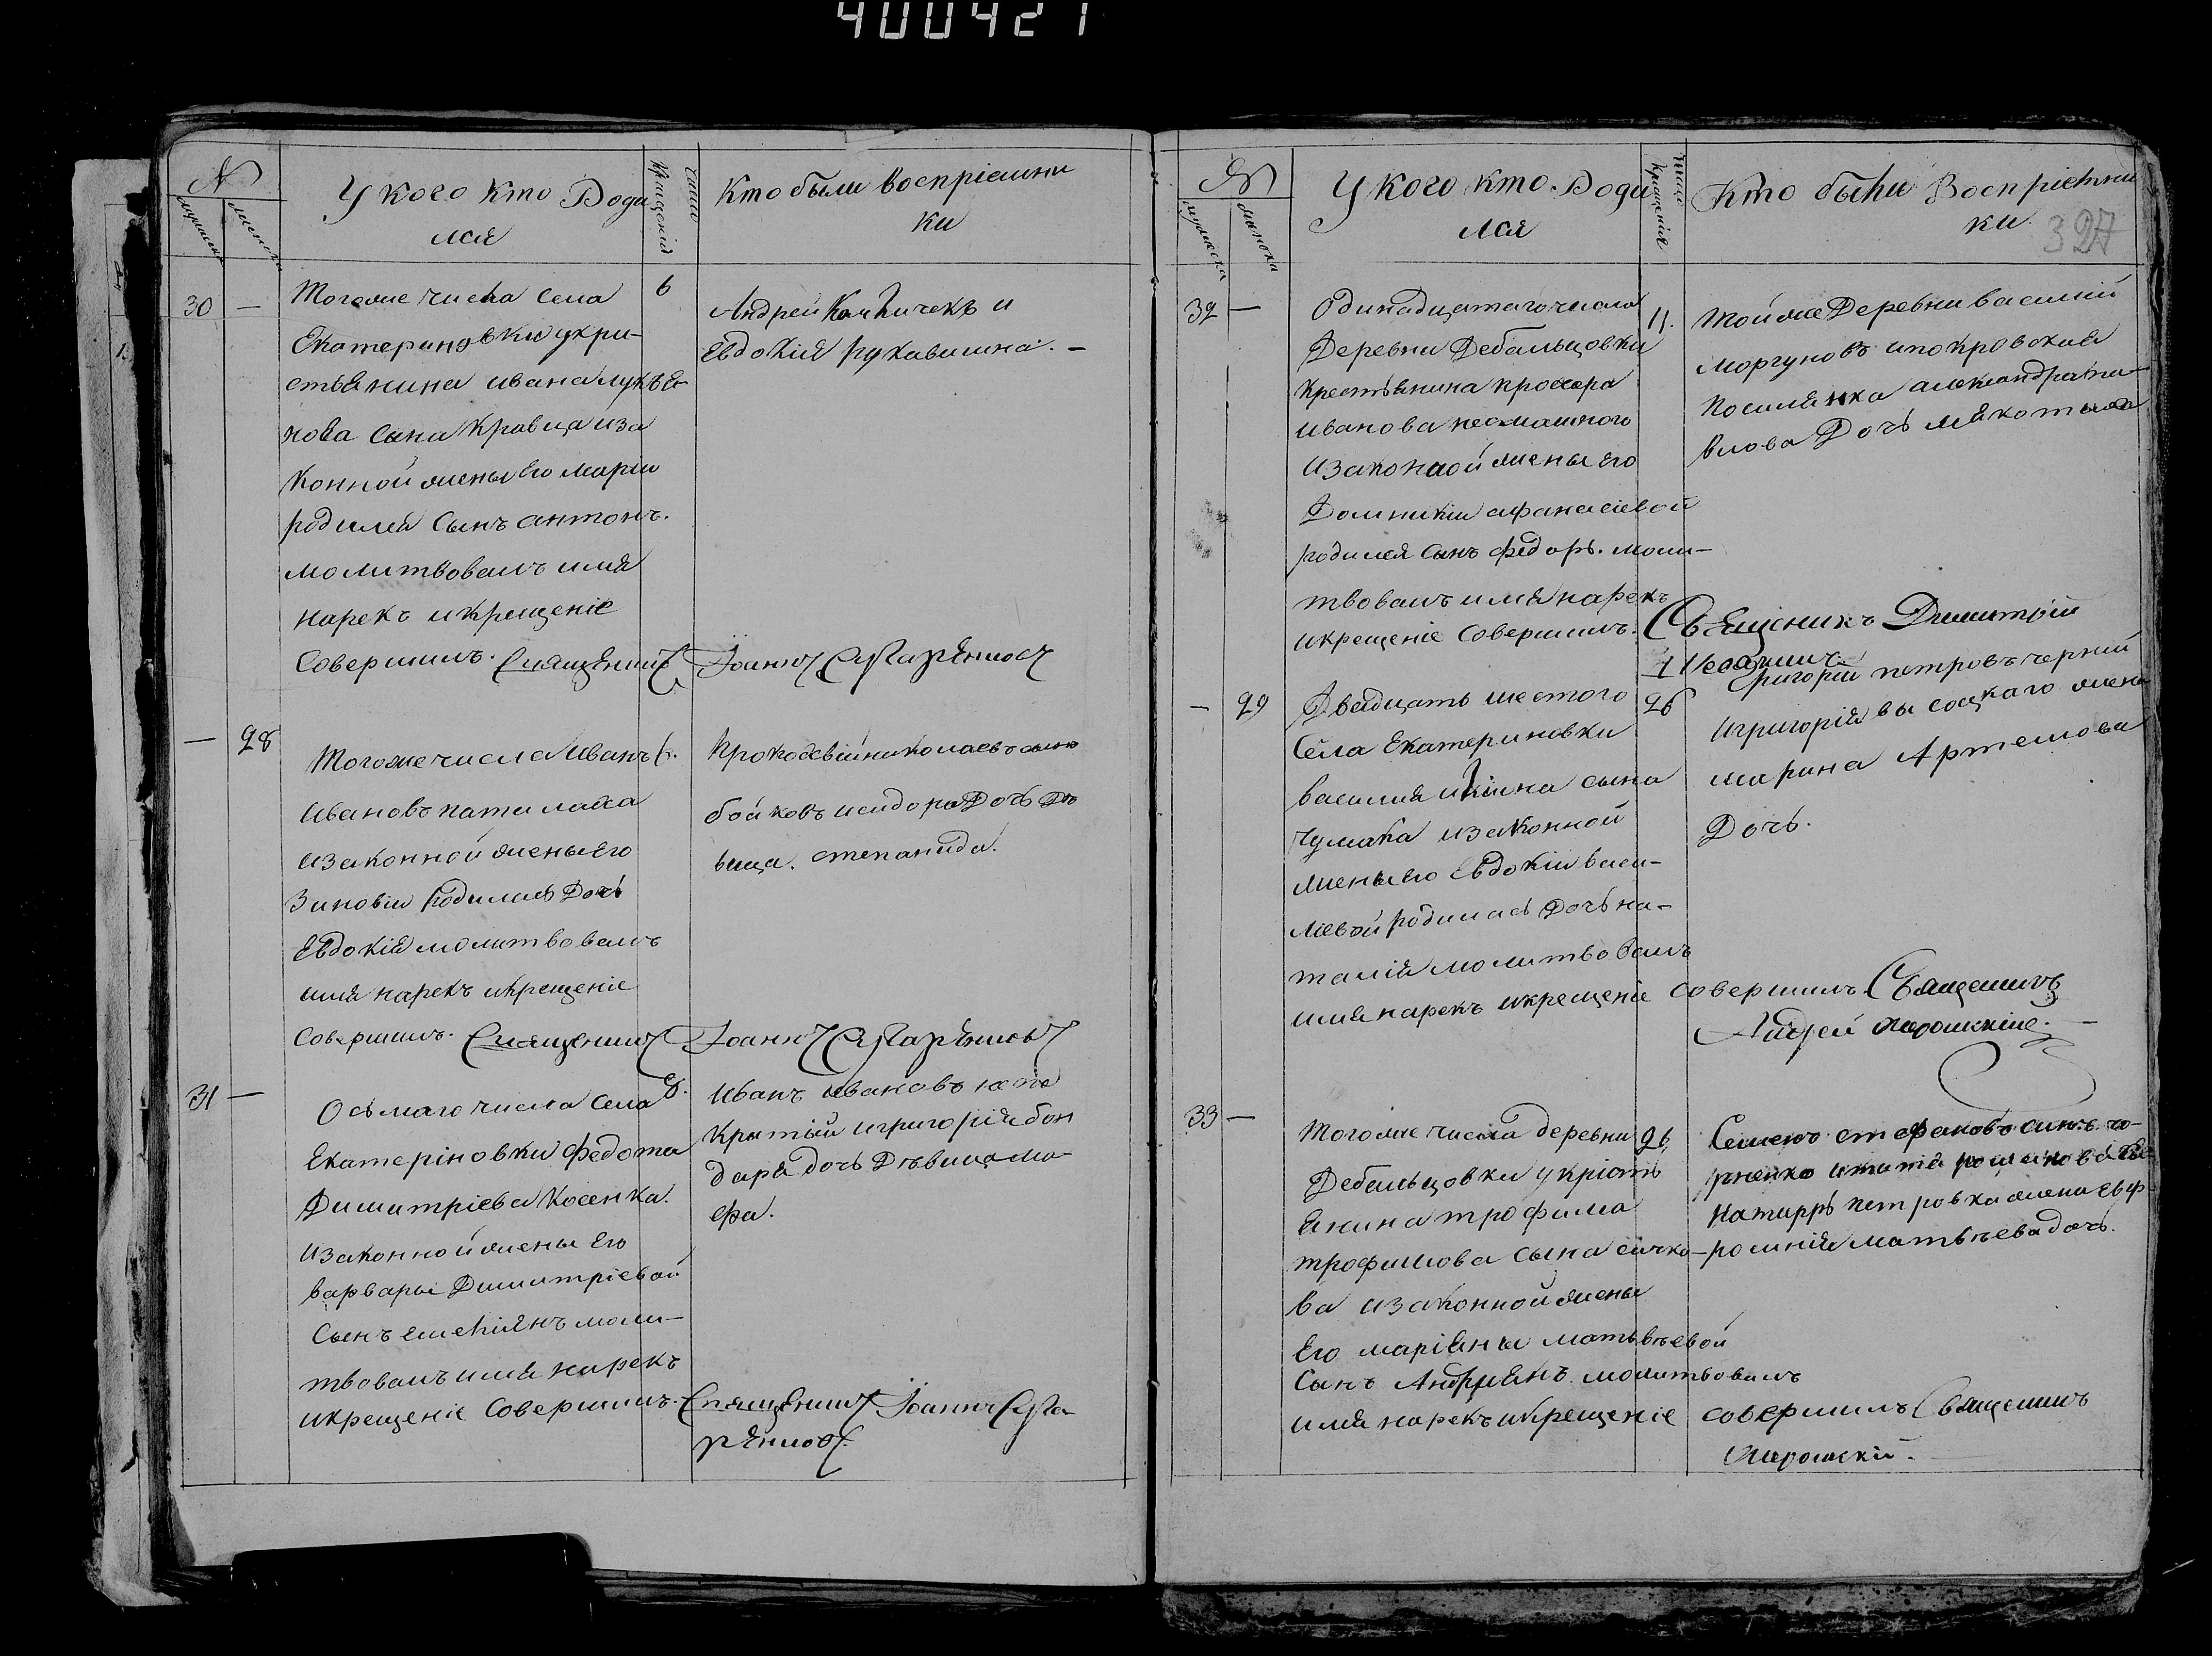 400421
№
мужеска
женска
У кого кто Роди
лся
число
крещенія
Кто были воспріемни
ки
30 —
Тогоже числа села
Екатериновки укри-
стьянина ивана лукья
нова сына Кравца иза
конной жены Его марии
родился Сынъ антонъ.
молитвовалъ имя
нарекъ икрещеніе
Совершилъ. Священникъ Іоаннъ
6
Андрей и
Евдокія рукавишна. —
— 28
Тогоже числа Иванъ
Ивановъ
иззаконной жены Его
Зиновіи родилась Дочь
Евдокія молитвовалъ
имя нарекъ икрещеніе
Совершилъ. Священникъ Іоаннъ
6.
Прокофій николаевъ сынъ
бойковъ исидора Дочь Дѣ
вица. степанида.
31 —
Осьмаго числа села
Екатеріновки федота
Димитріева Косенка.
иззаконной жены Его
варвары Димитріевой
Сынъ емеліянъ моли-
твовалъ имя нарекъ
икрещеніе Совершилъ. Священникъ Іоаннъ
8.
Иванъ ивановъ
Крытый игригорія бон
даря дочь Дѣвица ма-
фра.
№
мужеска
женска
У кого кто Роди
лся
число
крещенія
Кто были Воспріемни
ки
327
32 —
Одинадцатаго числа
Деревни Дебальцовки
Крестьянина прохора
иванова несмашного
иззаконной жены Его
Домникіи афанасіевой
родился сынъ федоръ. моли-
твовалъ имя нарекъ
икрещеніе Совершилъ. Священикъ Димитрій
11.
Тойже Деревни василій
моргуновъ ипокровская
поселянка александра па-
влова Дочь
— 29
Двадцать шестого
Села Екатериновки
василия сына
чумака иззаконной
жены его Евдокіи васи-
ліевой родилась Дочь на-
талія молитвовалъ
имя нарекъ икрещеніе совершилъ Священникъ
Андрей
26
Григорій петровъ черній
игригорія высоцкаго жена
марина Артемова
Дочь.
33 —
Тогоже числа деревни
Дебальцовки укрість
янина трофима
трофимова сына сичка-
ва иззаконной жены
Его маріяны матвѣевой
Сынъ Андріянъ. молитвовалъ
имя нарекъ икрещеніе совершилъ Священникъ
26
Семенъ стефановъ сынъ
петровка жена евф-
росинія матвѣева дочь.